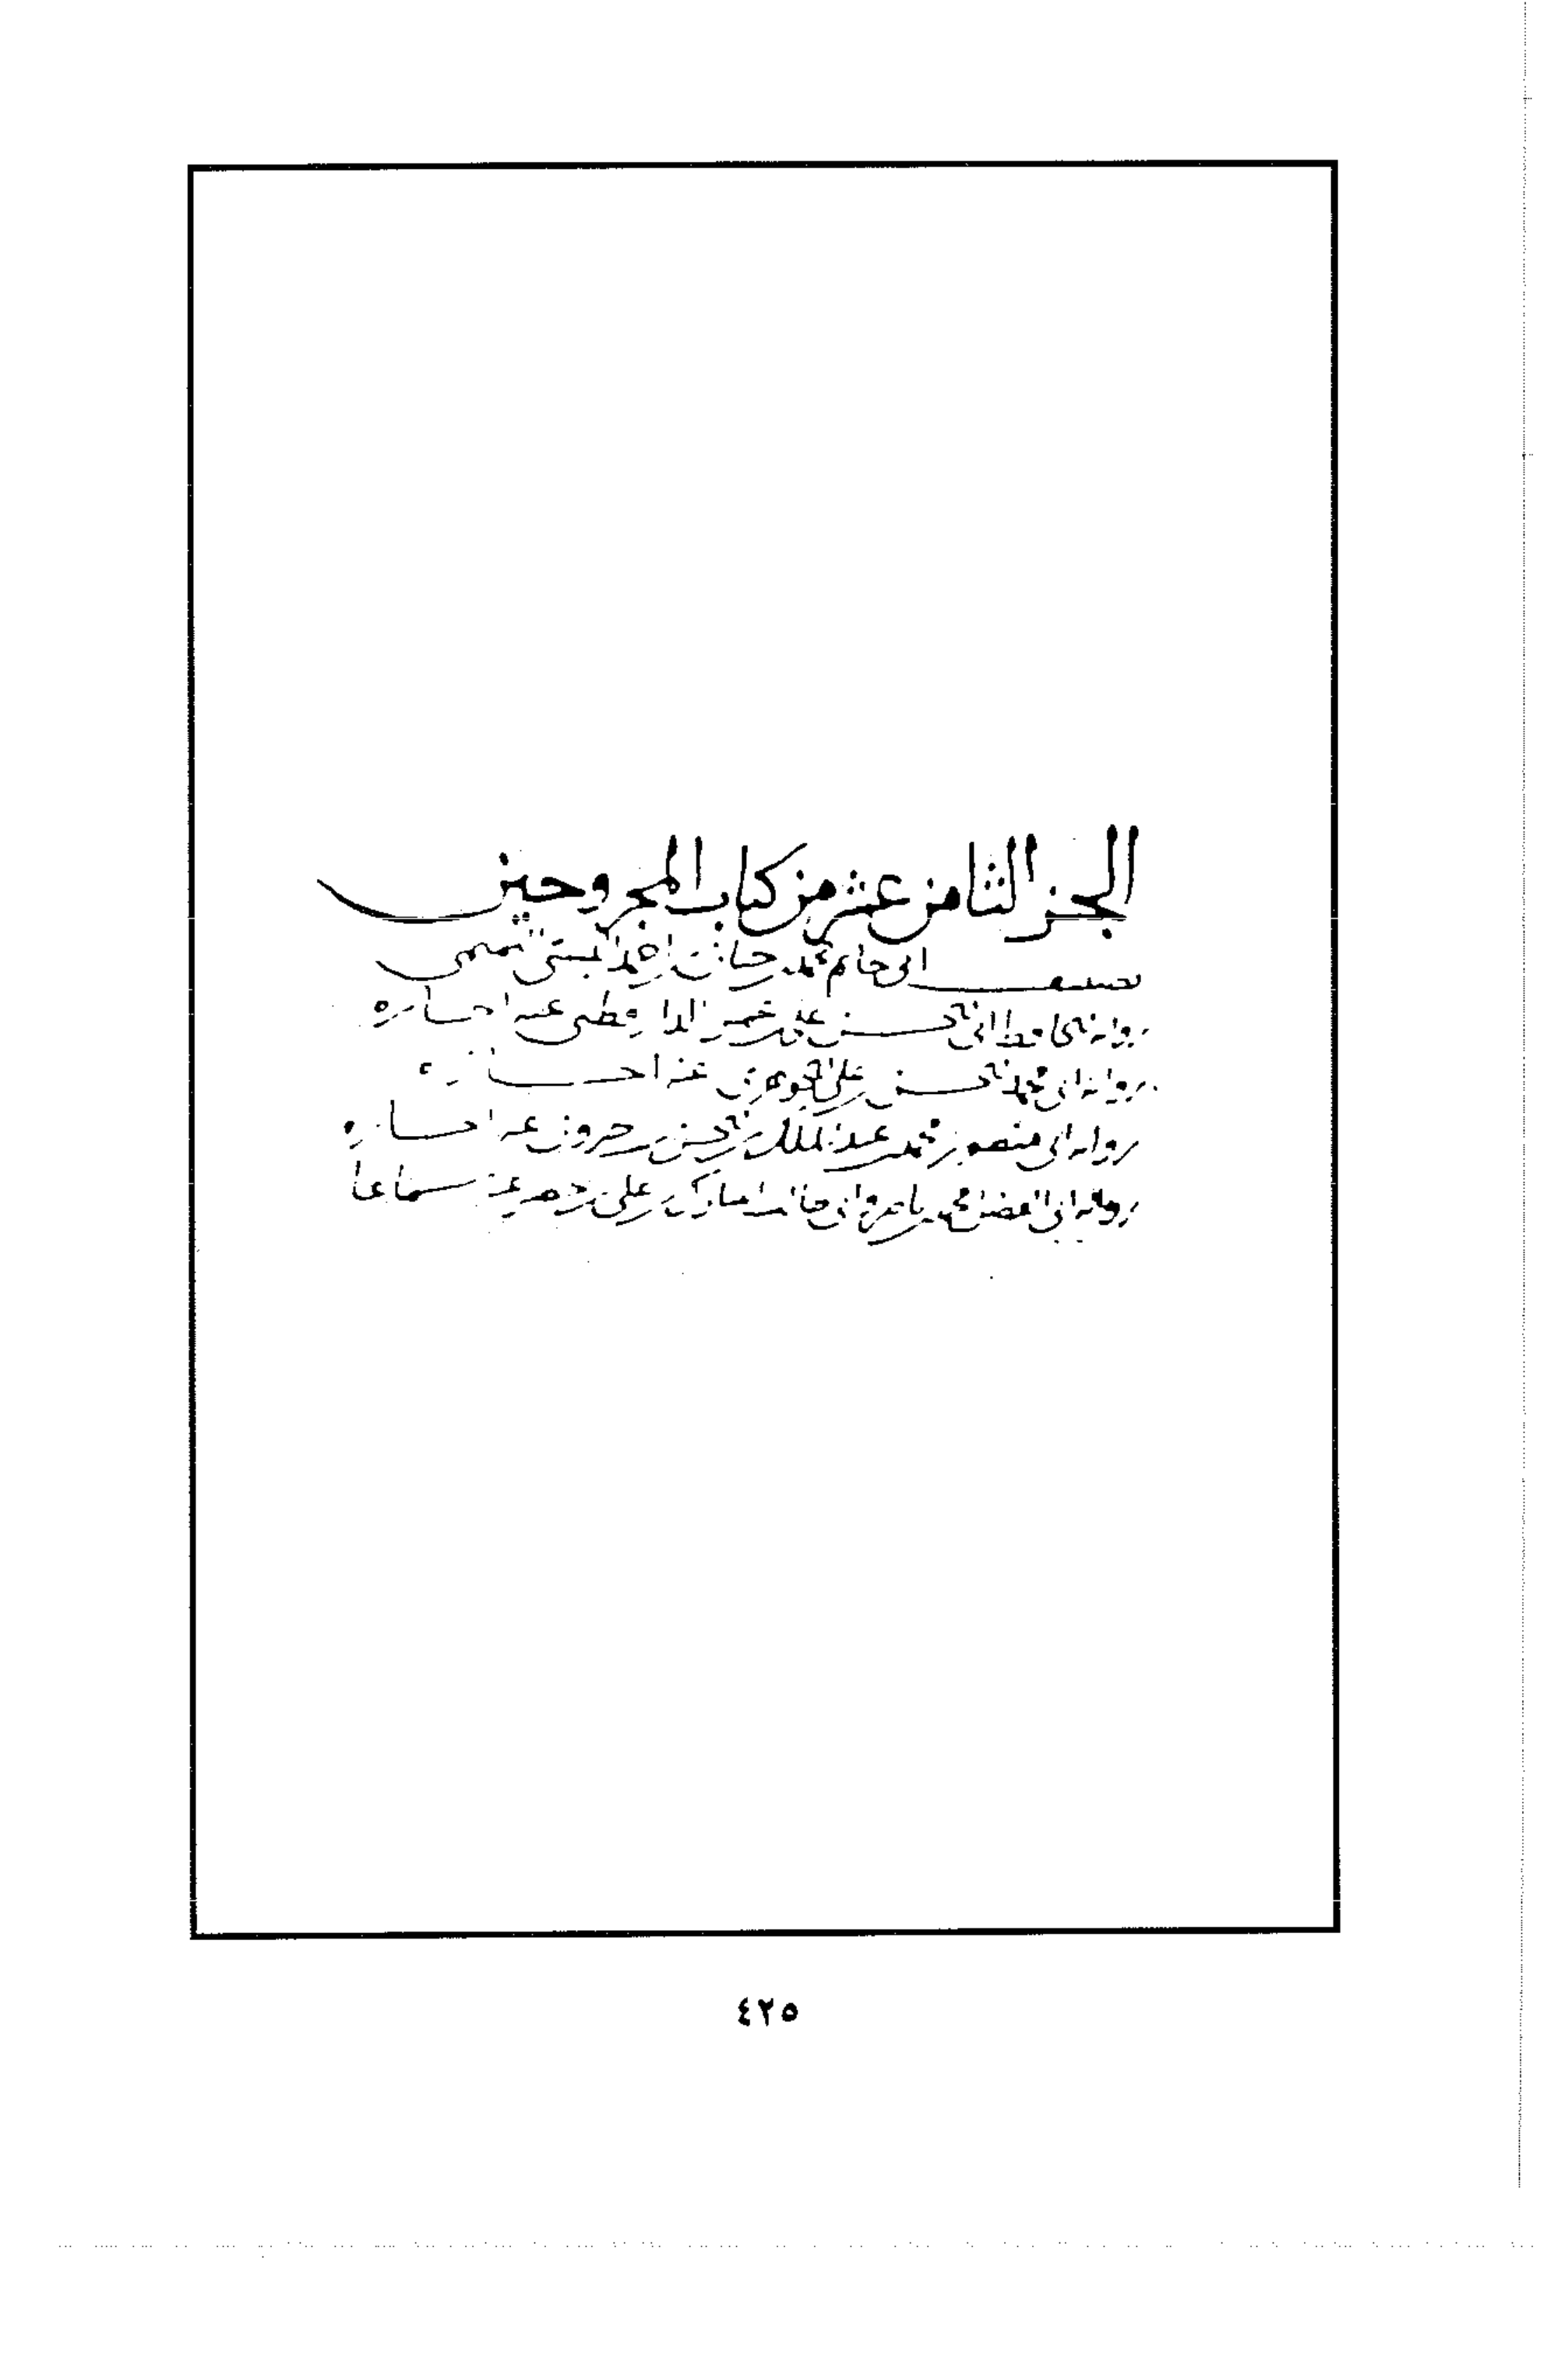 الجز الثامن عشر من كتاب المجروحين
تصنيف ابى حاتم محمد بن حبان بن احمد البستى التميمى
رواية الحافظ ابى الحسن على بن عمر الدارقطنى عنه اجازة
رواية ابى محمد الحسن بن على الجوهرى عنه اجازة
رواية ابى منصور محمد بن عبد الملك بن الحسن بن خيرون عنه اجازة
رواية ابى الفضل محمد بن ناصر وابى المبارك بن على عنه سماعا
٤٢٥